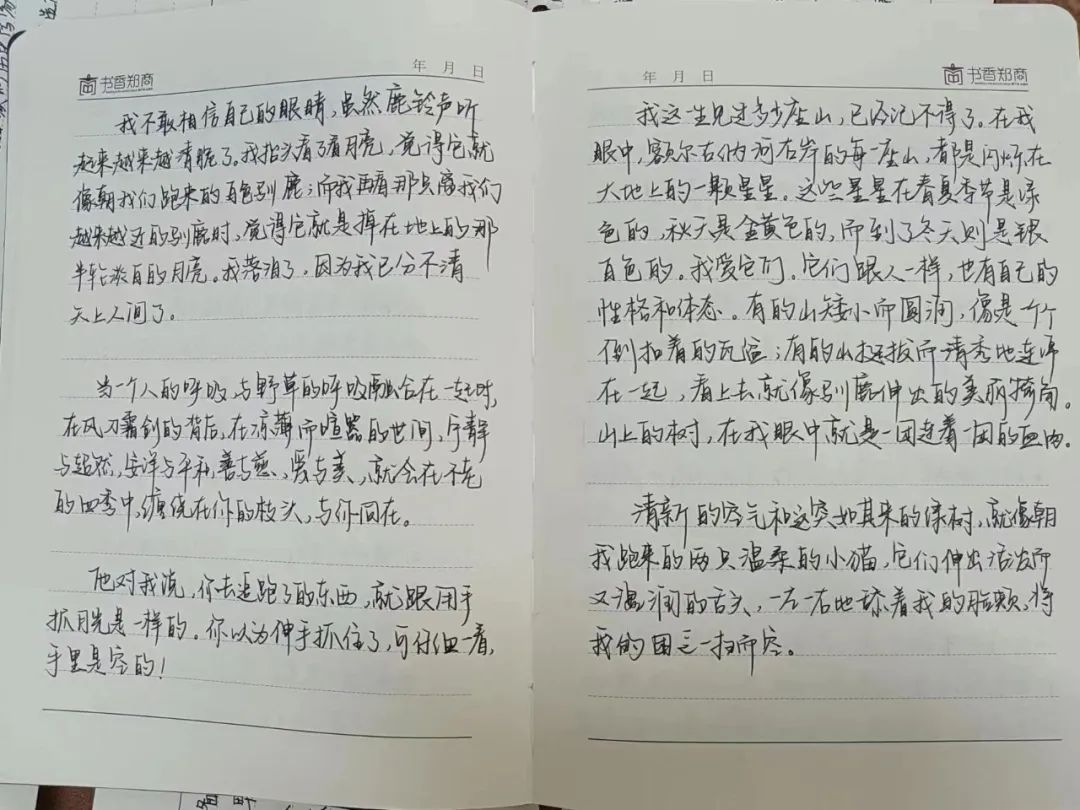 书香郑商
年 月 日
我不敢相信自己的眼睛,虽然鹿铃声听
起来越来越清脆了。我抬头看了看月亮,觉得它就
像朝我们跑来的白色驯鹿;而我再看那只离我们
越来越近的驯鹿时,觉得它就是掉在地上的那
半轮淡白的月亮。我落泪了,因为我已分不清
天上人间了。
当一个人的呼吸与野草的呼吸融合在一起时,
在风刀霜剑的背后,在凉薄而喧嚣的世间,宁静
与超然,安详与平和,善与慈、爱与美,就会在不老
的四季中,缠绕在你的枝头,与你同在。
他对我说,你去追跑了的东西,就跟用手
抓月光是一样的。你以为伸手抓住了,可仔细一看,
手里是空的!
年 月 日
书香郑商
我这一生见过多少座山,已经记不得了。在我
眼中,额尔古纳河右岸的每一座山,都是闪烁在
大地上的一颗星星。这些星星在春夏季节是绿
色的,秋天是金黄色的,而到了冬天则是银
白色的。我爱它们。它们跟人一样,也有自己的
性格和体态。有的山矮小而圆润,像是一个个
倒扣着的瓦盆;有的山挺拔而清秀地连绵
在一起,看上去就像驯鹿伸出的美丽犄角。
山上的树,在我眼中就是一团连着一团的血肉。
清新的空气和这突如其来的绿树,就像朝
我跑来的两只温柔的小猫,它们伸出活泼而
又温润的舌头,一左一右地舔着我的脸颊,将
我的困乏一扫而空。